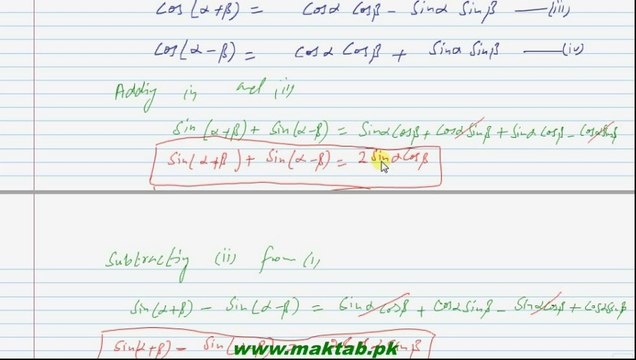 Cos(α+β) = Cosα Cosβ - Sinα Sinβ —(iii)
Cos(α-β) = Cosα Cosβ + Sinα Sinβ —(iv)
Adding
Sin(α+β) + Sin(α-β) = Sinα Cosβ + Cosα Sinβ + Sinα Cosβ - Cosα Sinβ
Sin(α+β) + Sin(α-β) = 2 Sinα Cosβ
Subtracting (ii) from (i)
Sin(α+β) - Sin(α-β) = Sinα Cosβ + Cosα Sinβ - Sinα Cosβ + Cosα Sinβ
Sin(α+β) - Sin(α-β)
www.maktab.pk